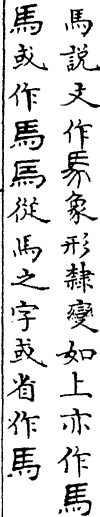 馬說文作馬象形隸變如上亦作馬
馬或作馬馬從馬之字或省作馬